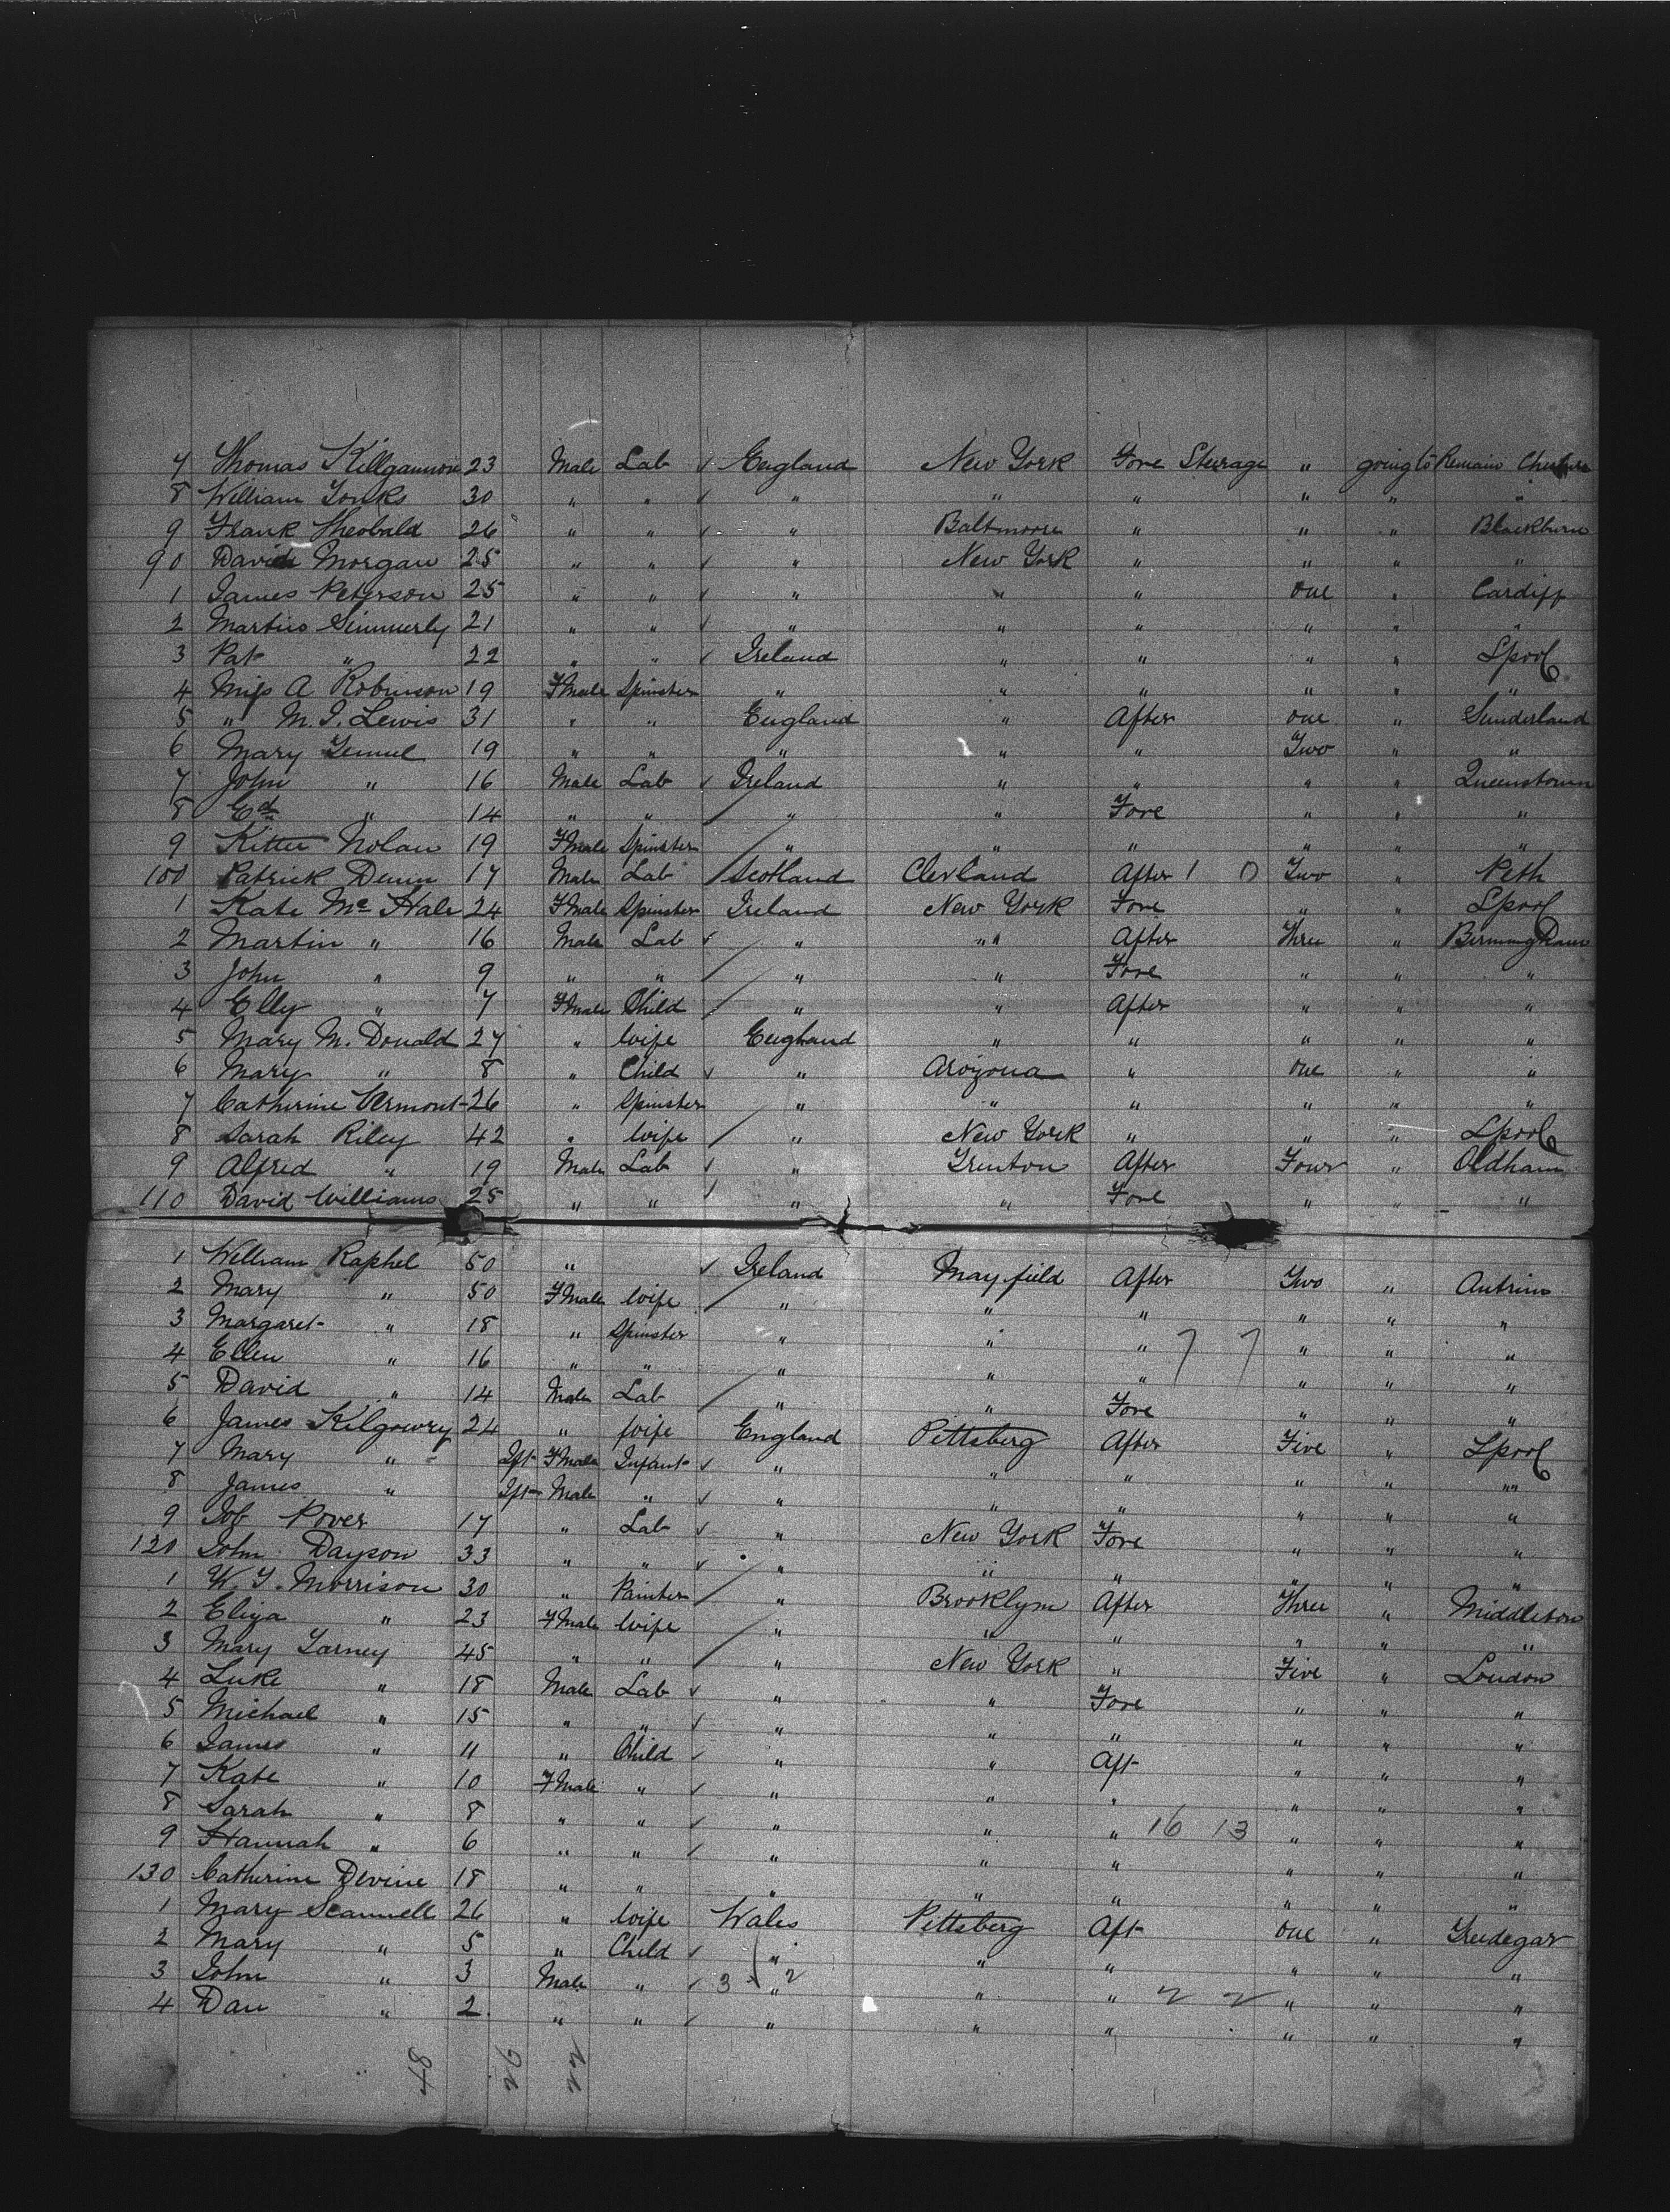 7 Thomas Killgannon 23 Male Lab ✓ England New York Fore Steerage " going to Remain
8 William Tonks 30 " " ✓ " " " " " "
9 Frank Theobald 26 " " ✓ " Baltmoore " " " Blackburn
90 David Morgan 25 " " ✓ " New York " " " "
1 James Peterson 25 " " ✓ " " " one " Cardiff
2 Martin Simmerly 21 " " ✓ " " " " " "
3 Pat " 22 " " ✓ Ireland " " " " Lpool
4 Miss A Robinson 19 F Male Spinster " " " " " "
5 " M. J. Lewis 31 " " England " After one " Sunderland
6 Mary 19 " " " " " Two " "
7 John " 16 Male Lab ✓ Ireland " " " " Queenstown
8 Ed " 14 " " / " " Fore " " "
9 Kitter Nolan 19 F Male Spinster " " " " " "
100 Patrick Dunn 17 Male Lab / Scotland Clevland After 1 0 Two " Peth
1 Kate Mc Hale 24 F Male Spinster Ireland New York Fore " " Lpool
2 Martin " 16 Male Lab ✓ " " " After Three " Birmingham
3 John " 9 " " / " " Fore " " "
4 Elly " 7 F Male Child / " " After " " "
5 Mary M. Donald 27 " Wife England " " " " "
6 Mary " 8 " Child ✓ " Arozona " one " "
7 Catherine Vermont 26 " Spinster " " " " " "
8 Sarah Riley 42 " Wife / " New York " " " Lpool
9 Alfred " 19 Male Lab ✓ " Trenton After Four " Oldham
110 David Williams 25 " " ✓ " " Fore " " "
1 William Raphel 50 " ✓ Ireland Mayfield After Two " Antrim
2 Mary " 50 F Male Wife / " " " " " "
3 Margaret " 18 " Spinster " " " 7 7 " " "
4 Ellen " 16 " " " " " " " "
5 David " 14 Male Lab / " " Fore " " "
6 James Kilgowry 24 " Wife England Pittsberg After Five " Lpool
7 Mary " Ift F Male Infant ✓ " " " " " "
8 James " Ift Male " ✓ " " " " " "
9 Job Power 17 " Lab ✓ " New York Fore " " "
120 John Dayson 33 " " ✓ " " " " " "
1 W. J. Morrison 30 " Painter / " Brooklym After Three " Middleton
2 Eliza " 23 F Male Wife / " " " " " "
3 Mary Tarney 45 " " / " New York " Five " London
4 Luke " 18 Male Lab ✓ " " Fore " " "
5 Michael " 15 " " ✓ " " " " " "
6 James " 11 " Child ✓ " " Aft " " "
7 Kate " 10 F Male " ✓ " " " " " "
8 Sarah " 8 " " ✓ " " " 16 13 " " "
9 Hannah " 6 " " ✓ " " " " " "
130 Catherine Devine 18 " " " " " " " "
1 Mary Scannell 26 " Wife Wales Pittsberg Aft one " Tredegar
2 Mary " 5 " Child ✓ " " " " " "
3 John " 3 Male " ✓ 3 2 " " " 2 2 " " "
4 Dan " 2 " " ✓ " " " " " "
48 26 22